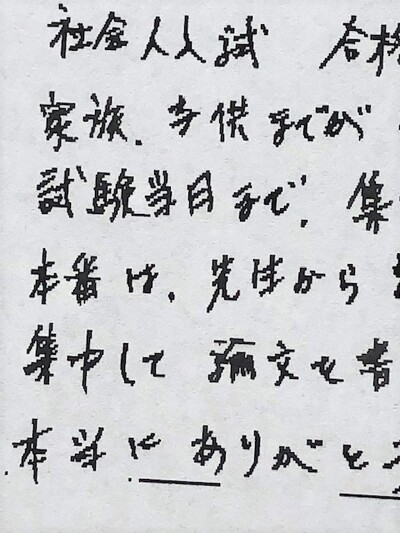 社会人入試 合格
家族、子供までが
試験当日まで、集
本番は、先生から
集中して論文を書
本当にありがと